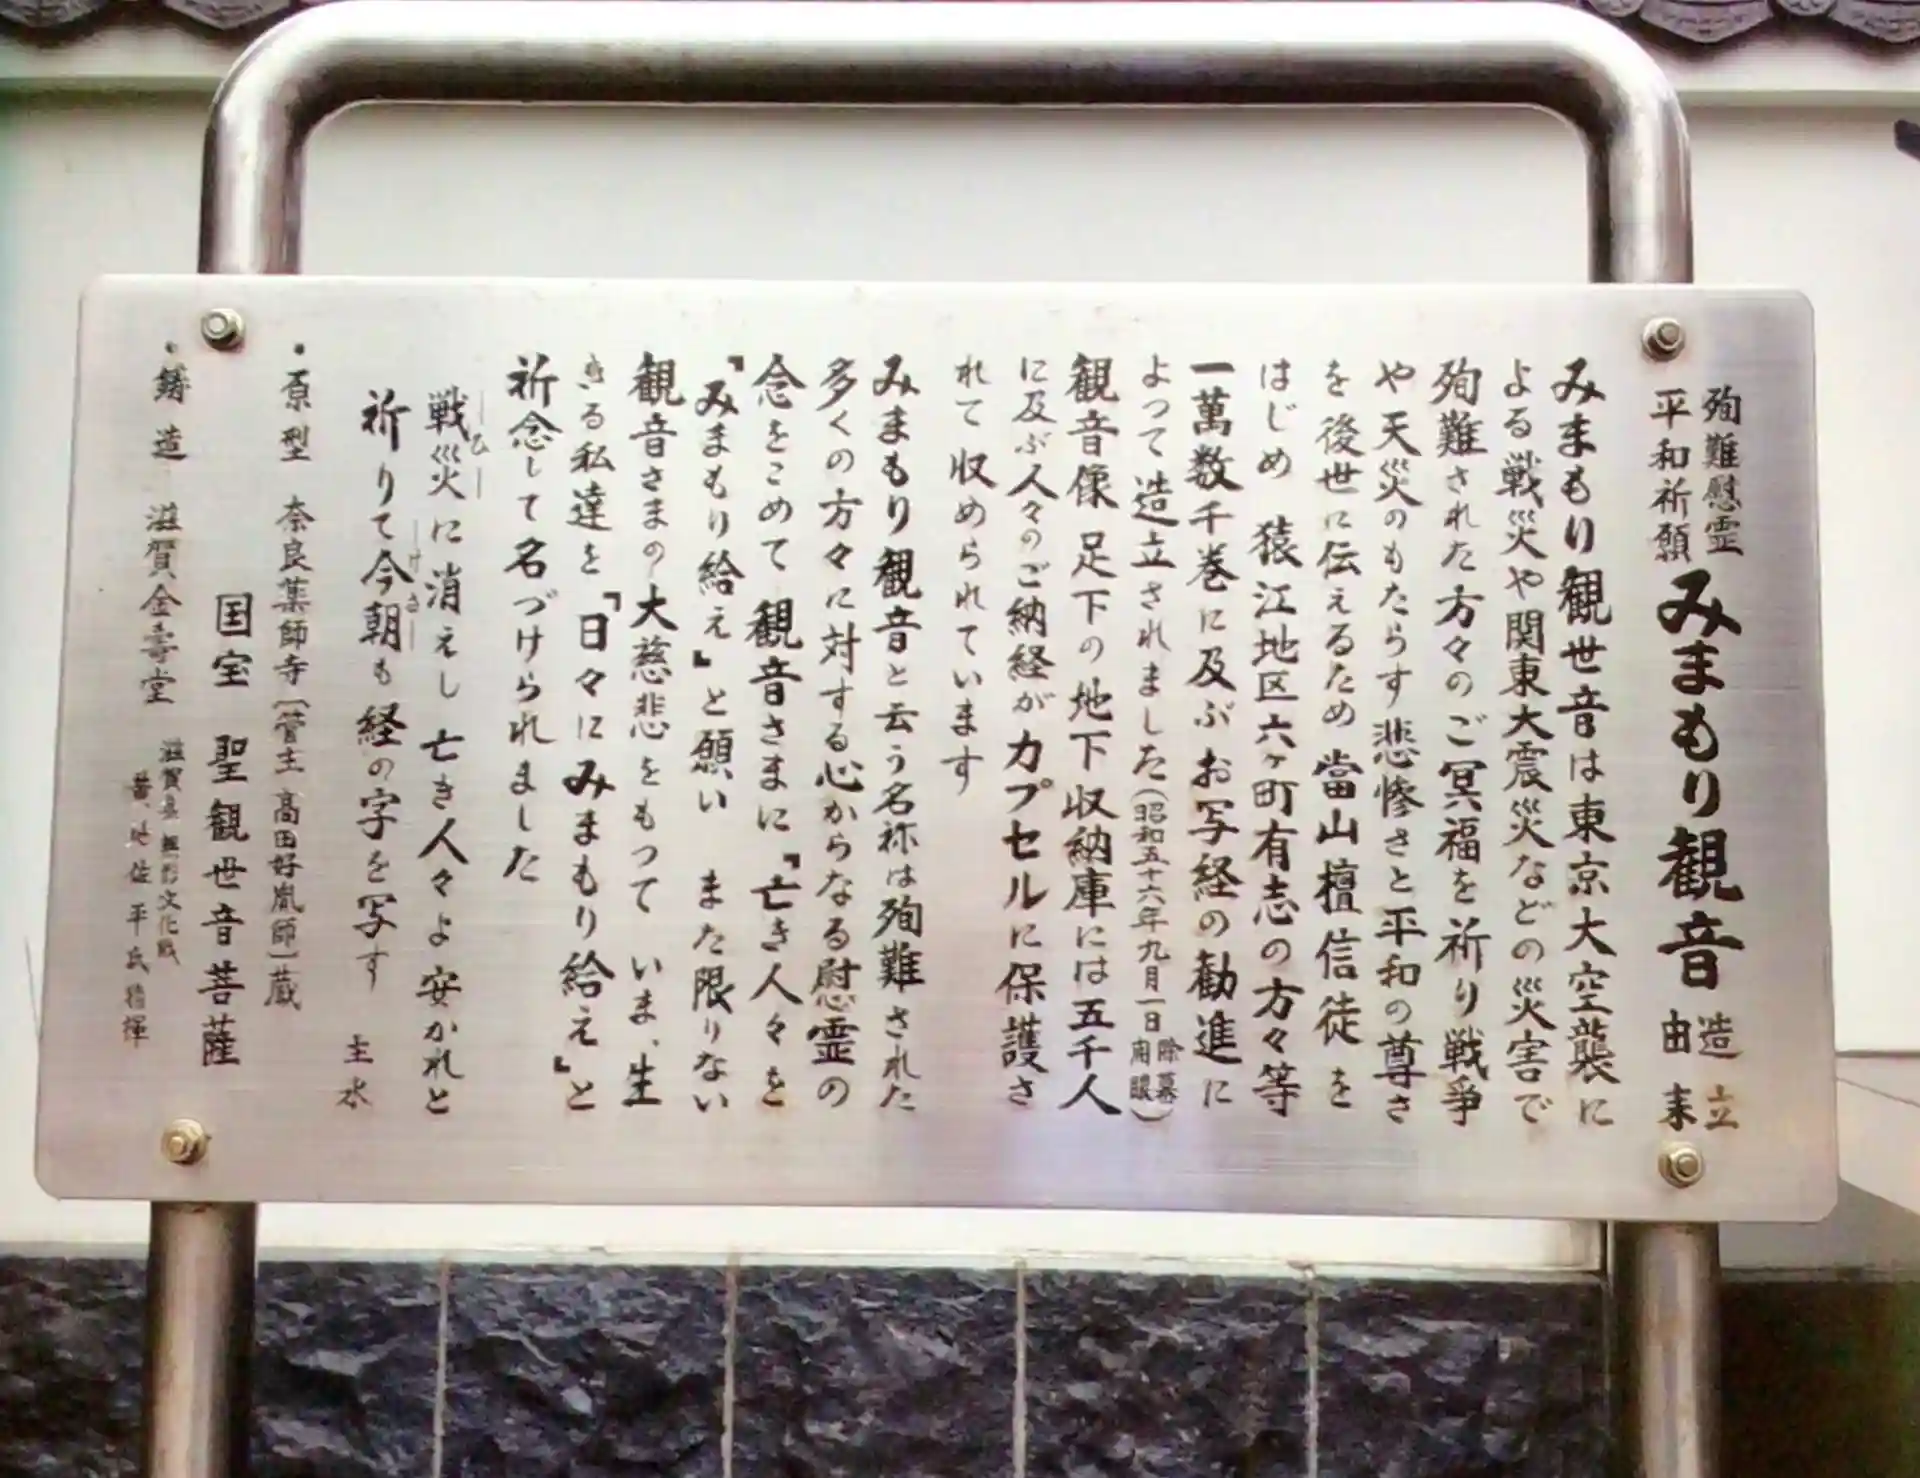 殉難慰霊
平和祈願
みまもり観音
造立
由来
みまもり観世音は東京大空襲に
よる戦災や関東大震災などの災害で
殉難された方々のご冥福を祈り戦争
や天災のもたらす悲惨さと平和の尊さ
を後世に伝えるため 當山檀信徒を
はじめ 猿江地区六ヶ町有志の方々等
一萬数千巻に及ぶお写経の勧進に
よって造立されました(昭和五十六年九月一日 除幕 開眼)
観音像足下の地下収納庫には五千人
に及ぶ人々のご納経がカプセルに保護さ
れて収められています
みまもり観音と云う名称は殉難された
多くの方々に対する心からなる慰霊の
念をこめて 観音さまに『亡き人々を
『みまもり給え』と願い また限りない
観音さまの大慈悲をもって いま、生
きる私達を『日々にみまもり給え』と
祈念して名づけられました
戦災に消えし亡き人々よ安かれと
ひ
祈りて今朝も経の字を写す
けさ
主水
・原型 奈良薬師寺(管主 高田好胤師)蔵
国宝 聖観世音菩薩
・鋳造 滋賀金壽堂
滋賀県 無形文化財
黄地佐平氏指揮